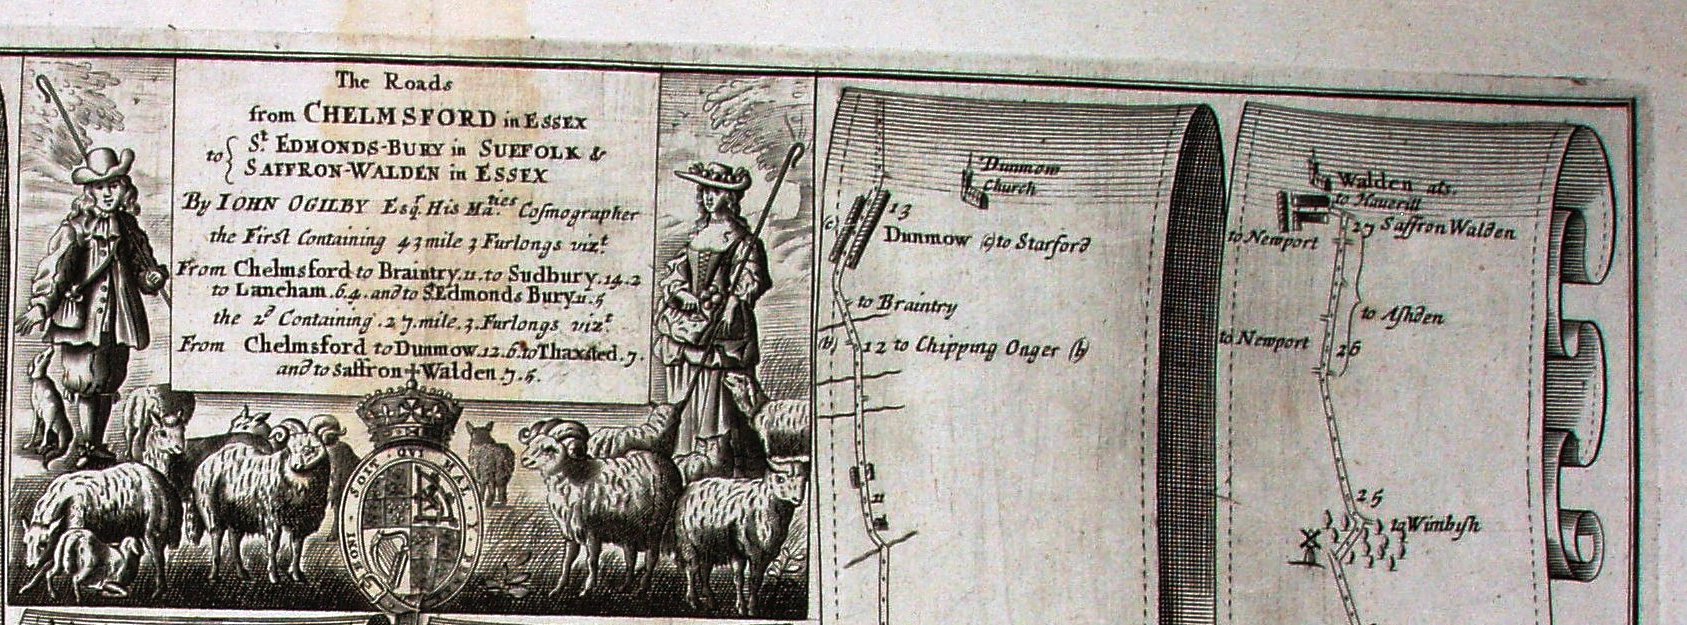 The Roads
from CHELMSFORD in ESSEX
to { St. EDMONDS-BURY in SUFFOLK &
SAFFRON-WALDEN in ESSEX
By IOHN OGILBY Esqr. His Maties Cosmographer
the First Containing 43 mile 3 Furlongs vizt.
From Chelmsford to Braintry.11. to Sudbury.14.2
to Lancham.6.4. and to St Edmonds Bury.11.5
the 2d Containing.27.mile.3.Furlongs vizt.
From Chelmsford to Dunmow.12.6. to Thaxsted.7.
and to Saffron Walden.7.5.
HONI SOIT QUI MAL Y PEN
Dunmow
Church
(c)
13
Dunmow (c) to Starford
to Braintry
(b) 12 to Chipping Onger (b)
11
Walden als.
to Haverill
27 Saffron Walden
to Newport
to Ashden
to Newport
26
25
to Wimbish